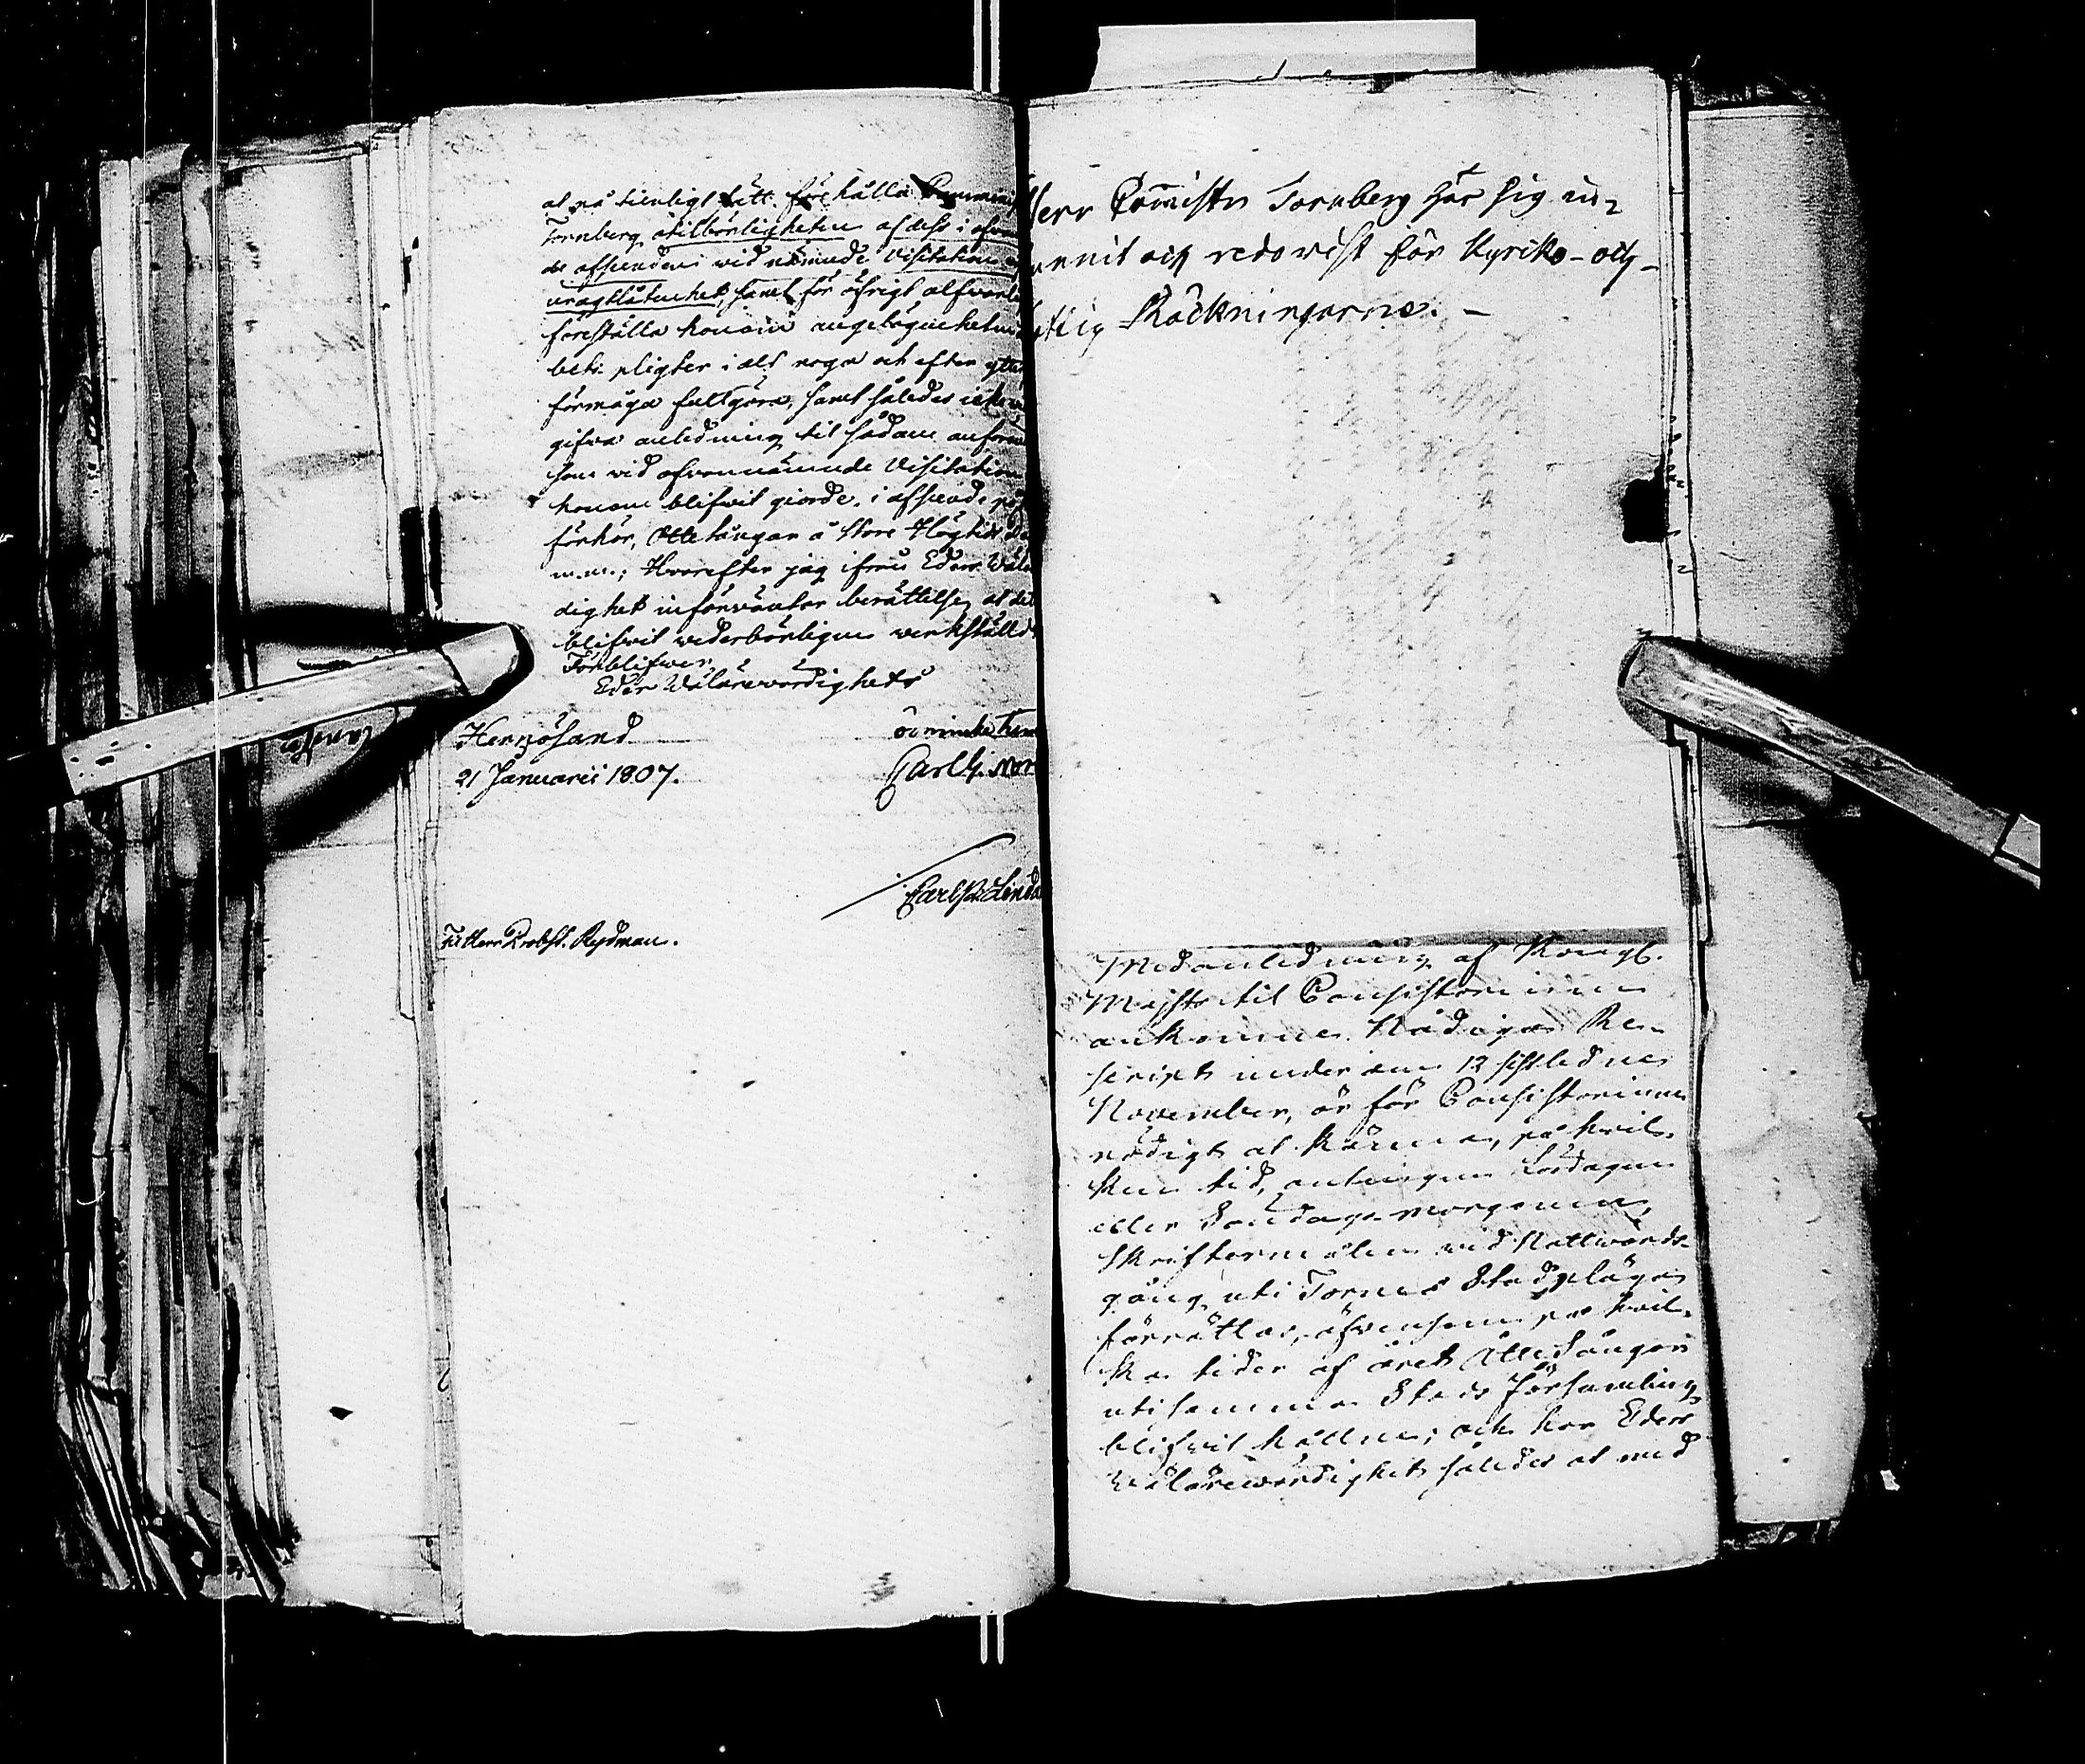 at på tienligt sätt förehålla Comminist
Tornberg otilbörligheten af dess i ofwan
de afseenden wid nämnde Visitation
uragtlåtenhet, samt för öfrigt alfwarli
föreställa honom angelägenheten
bets pligter i alt noga och efter ytte
förmåga fullgöra, samt således icke
gifwa anledning til sådane anför
som wid ofwannämnde Visitation
honom blifwit giorde, i afseende på
förhör, Ottesångar å Store Högtids da
m.m.; Hwarefter jag ifrån Eder Wälä
dighet inforwäntar berättelse, at det
blifwit wederbörligen werkstäldt
Förblifwer
Eder Wälärewördighets
Hernösand
ödmiuke tien
21 Januarii 1807.
Carl G. Nor
Carl P. Linda
Til Herr Probst. Rydman.
Herr Comministr Tornberg har sig in-
unnit och redo wist för Kyrko- och
Räckningarne. -
Med anledning af Kongl.
Majsts til Consistorium
ankomne Nådiga Re-
script under den 12 sistledne
November, är för Consistorium
nödigt at känna, på hwil-
ken tid, antingen Lördagen
eller Söndags-morgonen,
Skriftermålen wid Nattwards-
gång uti Torneå Stad plägar
förrättas, äfwensom på hwil-
ka tider af året Ottesångar
uti samma Stads Församling
blifwit hållne; och har Eder
Wälärewördighet således at med